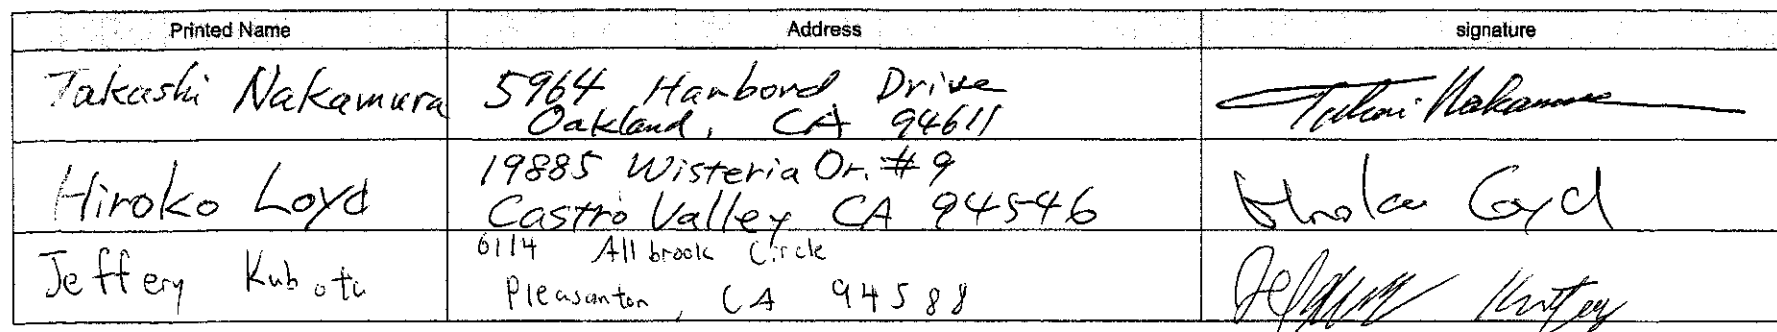 Printed Name Address signature
Takashi Nakamura 5964 Harbord Drive
Oakland, CA 94611
Takashi Nakamura
Hiroko Loyd 19885 Wisteria Dr. #9
Castro Valley CA 94546
Hiroko Loyd
Jeffery Kubota 6114 Allbrook Circle
Pleasanton, CA 94588